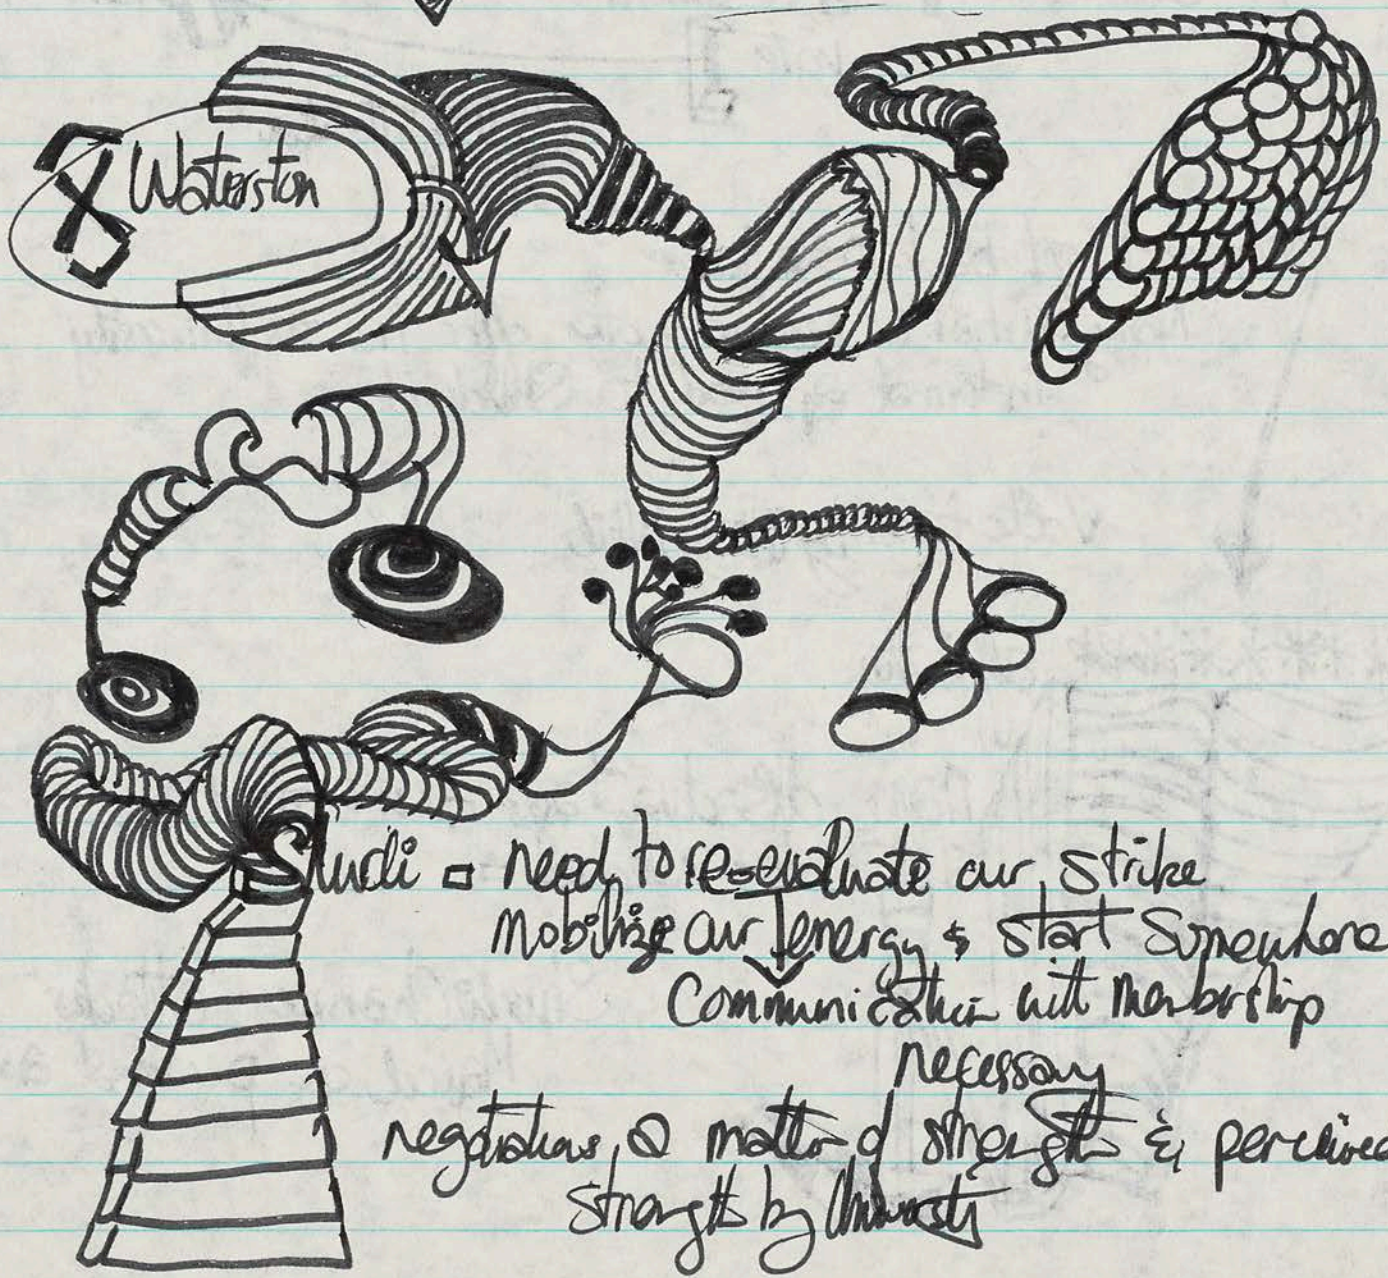 8 Waterston
need to re-evaluate our strike
mobilize our energy & start Somewhere
Communication with membership
necessary
negotiations a matter of strength & perceived
strength by University